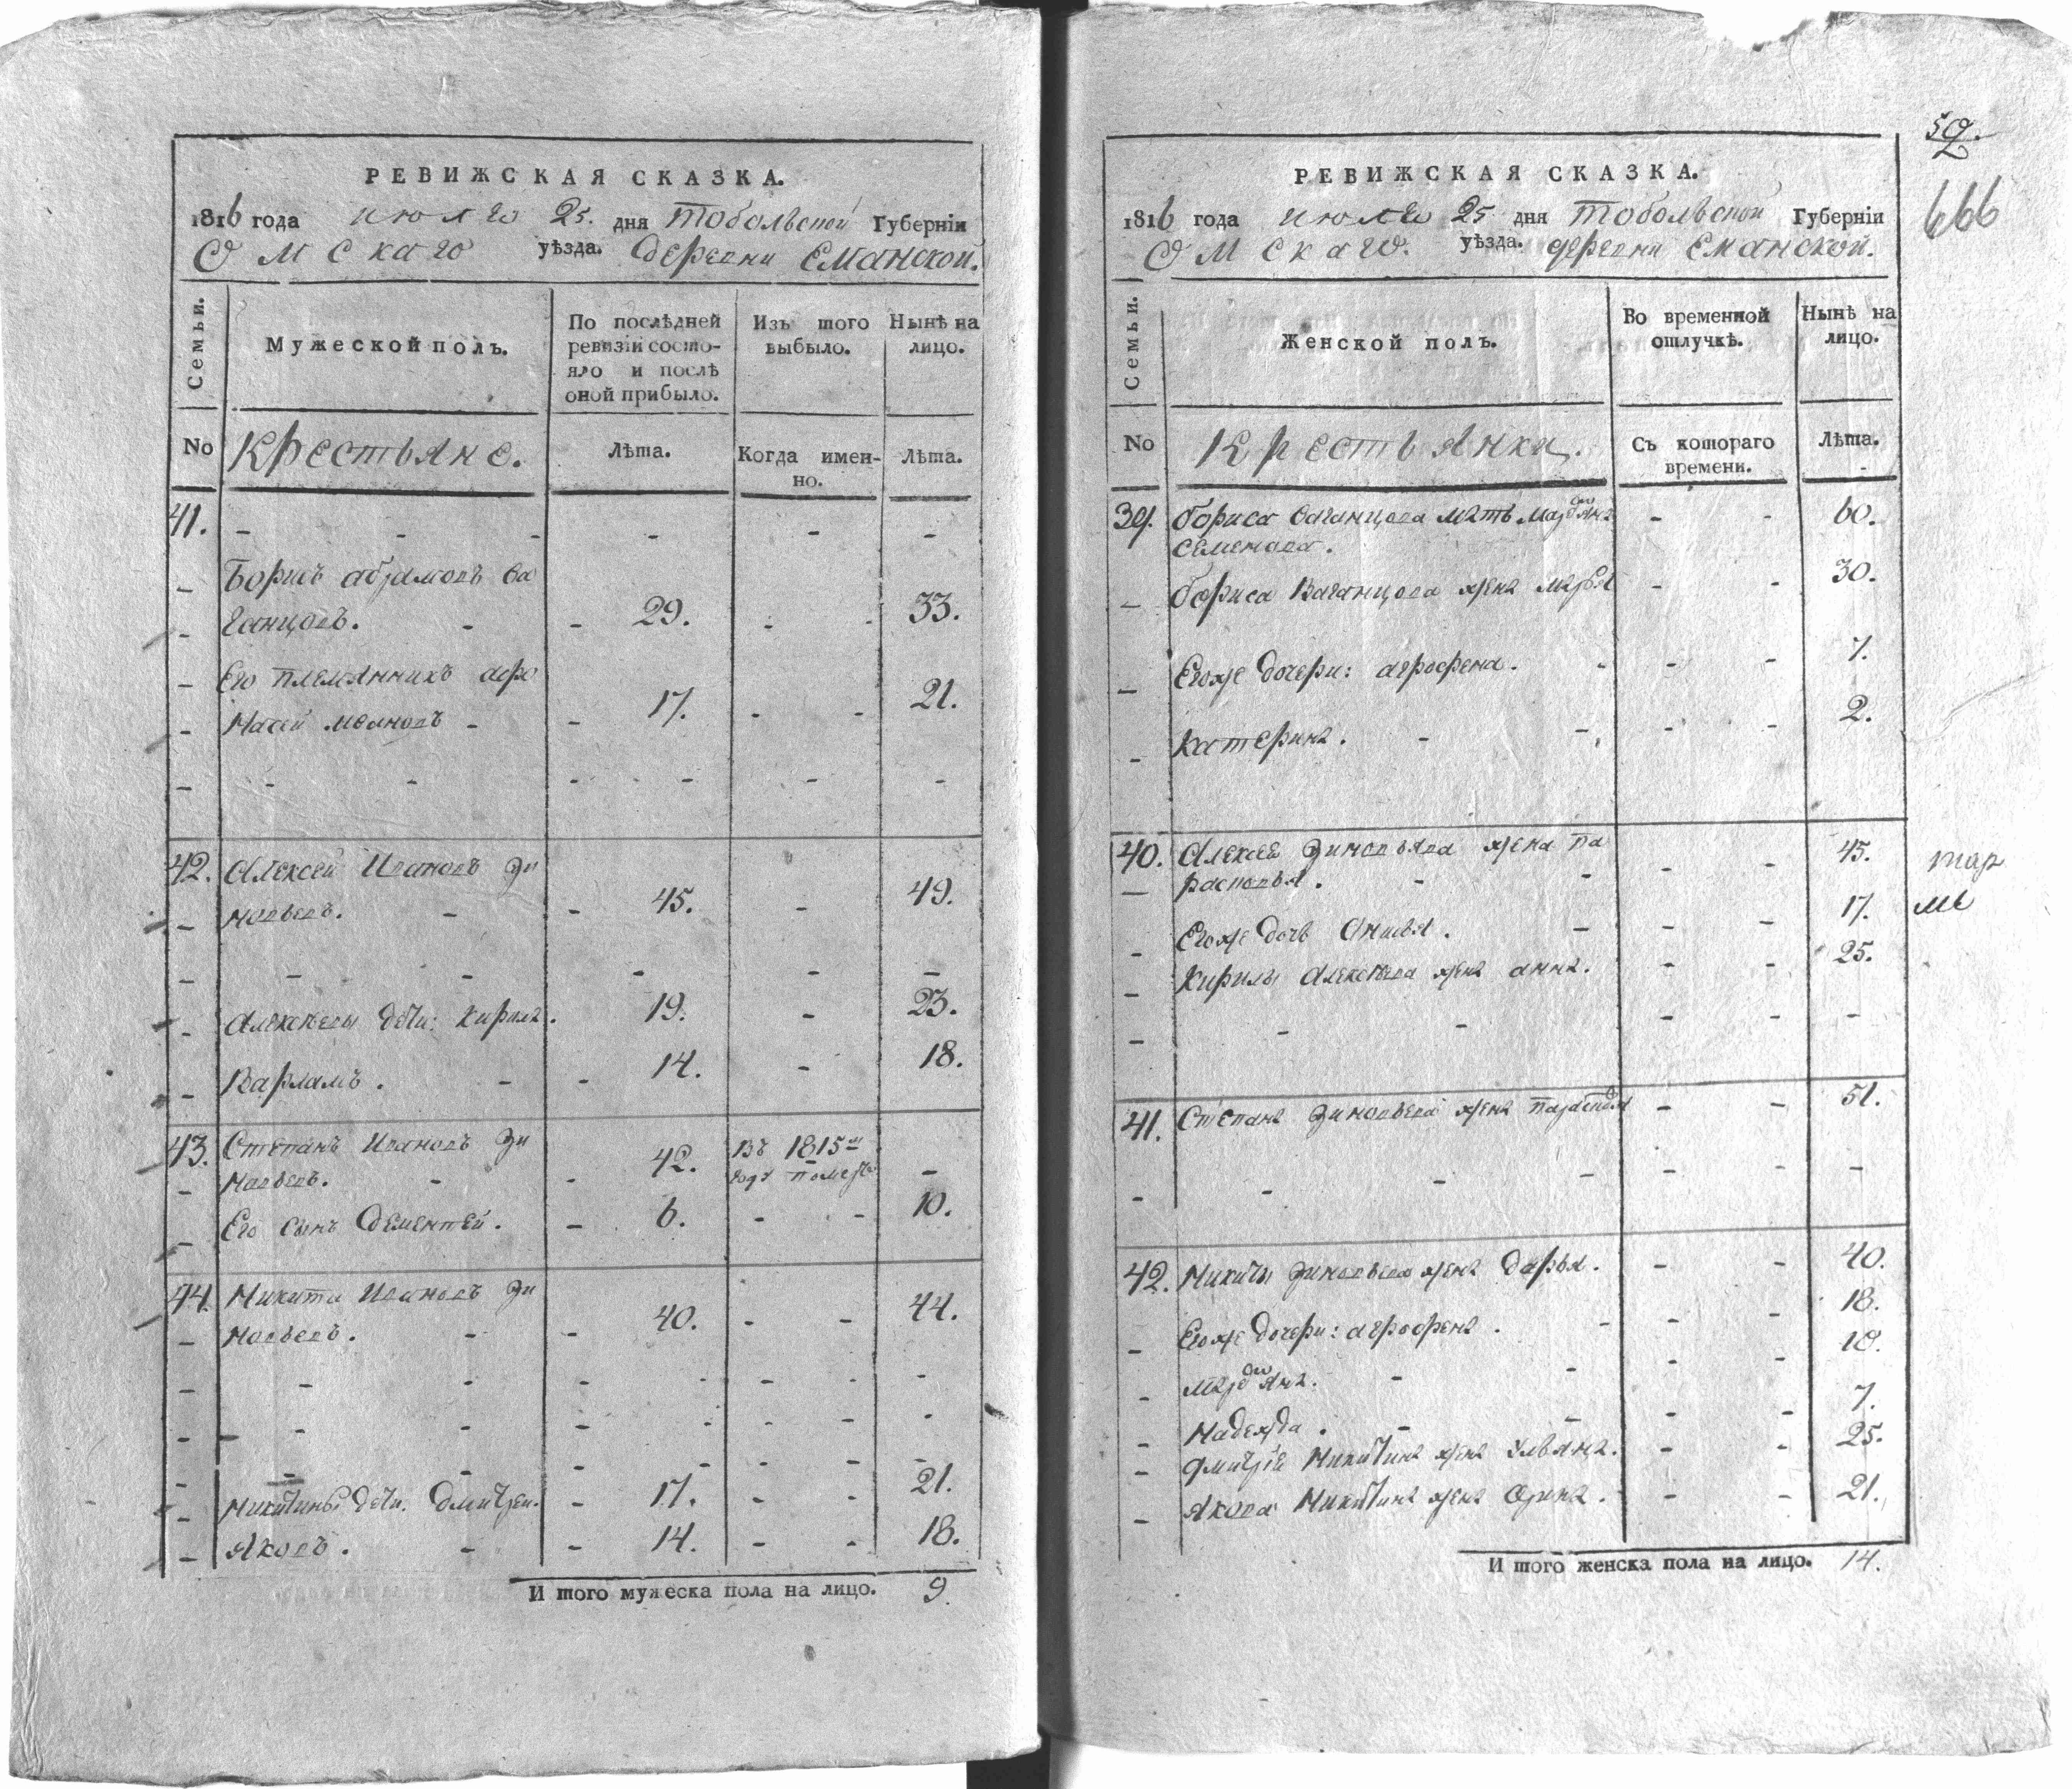 РЕВИЖСКАЯ СКАЗКА.
1816 года июля 25. дня Тобольской Губернїи
Омскаго уѣзда. деревни Еманской.
Семьи.
Мужеской полъ.
По послѣдней ревизїи состояло и послѣ оной прибыло.
Изъ того выбыло.
Нынѣ на лицо.
No Крестьяне.
Лѣта.
Когда именно.
Лѣта.
41. - - - - - -
Борисъ абрамовъ Ва
ганцовъ. - - 29. - - 33.
Его племянникъ афо
насей - - 17. - - 21.
- - - - - - - -
42. Алексей Ивановъ Зи
новьевъ. - - 45. - 49.
- - - - - -
Алексѣевы дѣти: Кирила. 19. - 23.
Варламъ. - - 14. - 18.
43. Степанъ Ивановъ Зи
новьевъ. - - 42. Въ 1815м -
году померъ
Его сынъ Дементей. - 6. - - 10.
44. Микита Ивановъ Зи
новьевъ. - - 40. - - 44.
- - - - - - -
- - - - - - -
- - - - - - -
Микитины дѣти. Дмитрей. - 17. - - 21.
Яковъ. - - 14. - - 18.
И того мужеска пола на лицо. 9.
59.
2
666
РЕВИЖСКАЯ СКАЗКА.
1816 года июля 25 дня Тобольской Губернїи
Омскаго. уѣзда. деревни Еманской.
Семьи.
Женской полъ.
Во временной отлучкѣ.
Нынѣ на лицо.
No Крестьянки.
Съ котораго времени.
Лѣта.
39. бориса Ваганцова мать Марѳимьяна - - 60.
Семенова.
бориса Ваганцова жена Марья - - 30.
Егоже дочери: агрофена. - - - 7.
Катерина. - - - - 2.
40. Алексея Зиновьева жена Па - - 45.
расковья. - -
Егоже дочь Анисья. - - - 17.
Кирилы Алексѣева жена анна. - - 25.
- - - - -
41. Степана Зиновьева жена Парасковья - - 51.
- - - - - -
42. Микиты Зиновьева жена Дарья. - - 40.
Егоже дочери: агрофена. - - - 18.
- - - - 10.
Надежда. - - - - 7.
Дмитрїя Микитина жена Ульяна. - - 25.
Якова Микитина жена Орина. - - 21.
И того женска пола на лицо. 14.